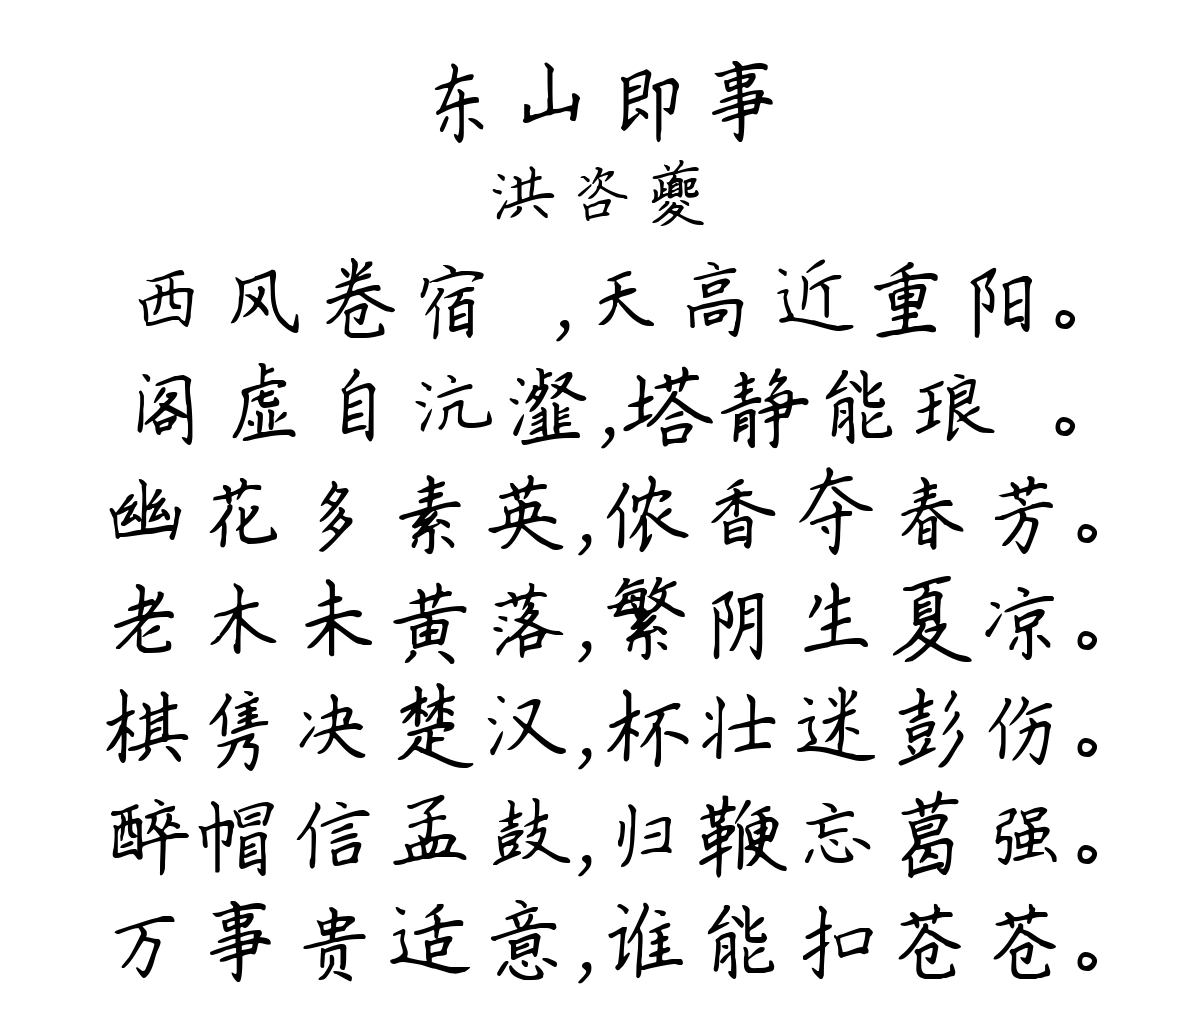 东山即事
洪咨夔
西风卷宿 ,天高近重阳。
阁虚自沆瀣,塔静能琅 。
幽花多素英,侬香夺春芳。
老木未黄落,繁阴生夏凉。
棋隽决楚汉,杯壮迷彭伤。
醉帽信孟鼓,归鞭忘葛强。
万事贵适意,谁能扣苍苍。